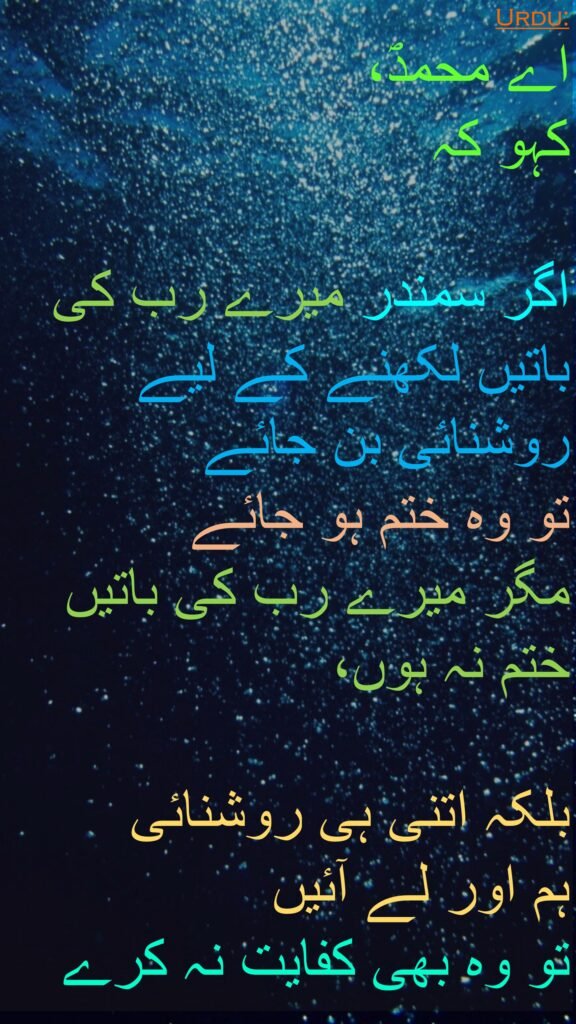 Urdu:
اے محمدؐ،
کہو کہ
اگر سمندر میرے رب کی
باتیں لکھنے کے لیے
روشنائی بن جائے
تو وہ ختم ہو جائے
مگر میرے رب کی باتیں
ختم نہ ہوں،
بلکہ اتنی ہی روشنائی
ہم اور لے آئیں
تو وہ بھی کفایت نہ کرے